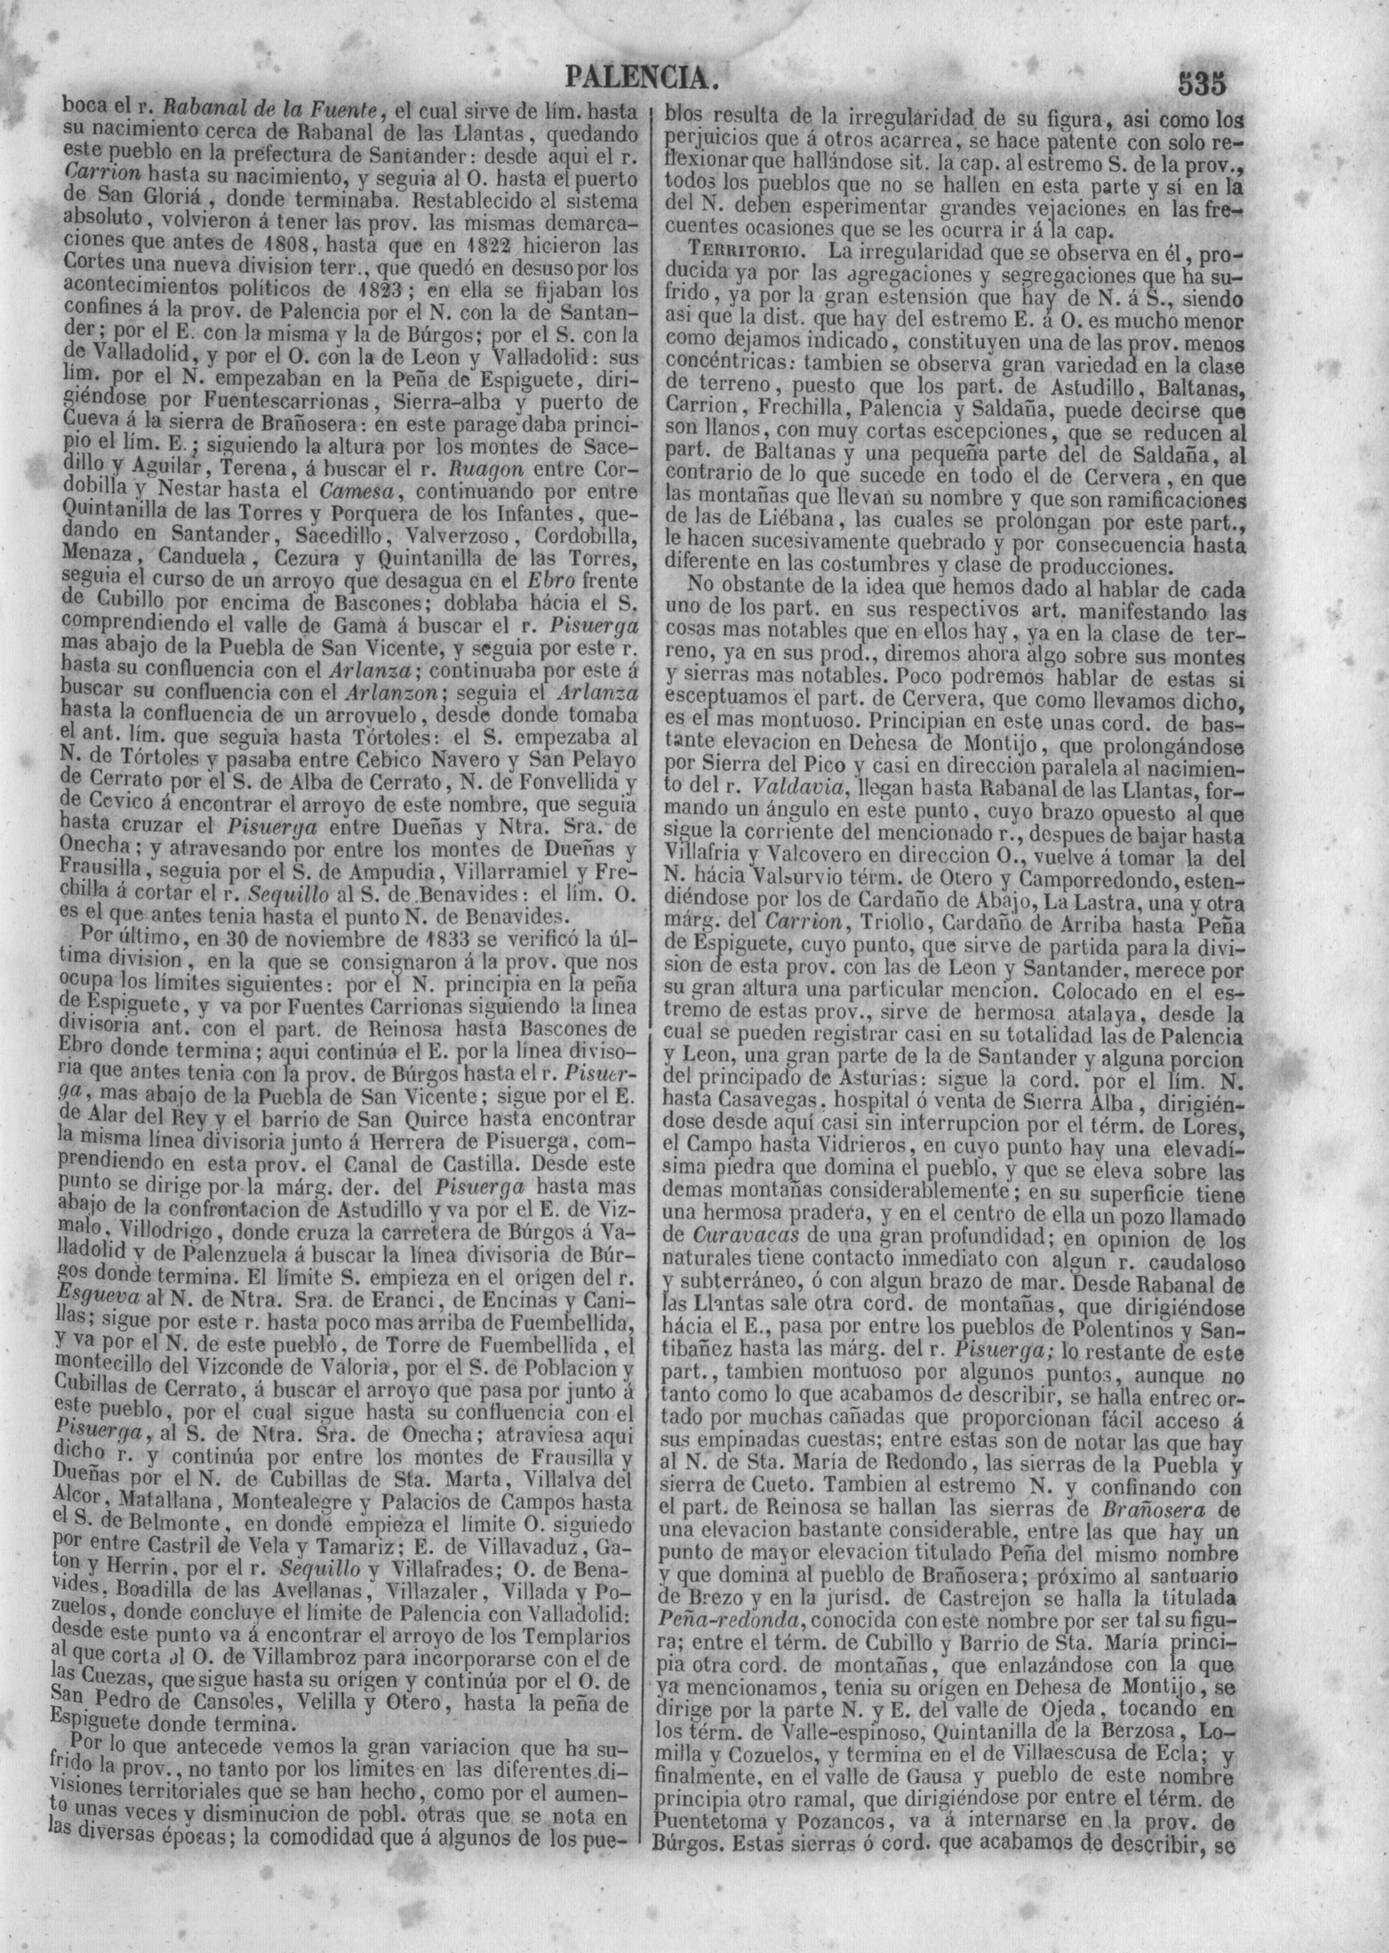 PALENCIA.
535
boca el r. Rabanal de la Fuente, el cual sirve de lím. hasta
su nacimiento cerca de Rabanal de las Llantas, quedando
este pueblo en la prefectura de Santander: desde aqui el r.
Carrion hasta su nacimiento, y seguia al O. hasta el puerto
de San Gloriá, donde terminaba. Restablecido el sistema
absoluto, volvieron á tener las prov. las mismas demarca-
ciones que antes de 1808, hasta que en 1822 hicieron las
Cortes una nueva division terr., que quedó en desuso por los
acontecimientos políticos de 1823; en ella se fijaban los
confines á la prov. de Palencia por el N. con la de Santan-
der; por el E. con la misma y la de Búrgos; por el S. con la
de Valladolid, y por el O. con la de Leon y Valladolid: sus
lím. por el N. empezaban en la Peña de Espiguete, diri-
giéndose por Fuentescarrionas, Sierra-alba y puerto de
Cueva á la sierra de Brañosera: en este parage daba princi-
pio el lím. E.; siguiendo la altura por los montes de Sace-
dillo y Aguilar, Terena, á buscar el r. Ruagon entre Cor-
dobilla y Nestar hasta el Camesa, continuando por entre
Quintanilla de las Torres y Porquera de los Infantes, que-
dando en Santander, Sacedillo, Valverzoso, Cordobilla,
Menaza, Canduela, Cezura y Quintanilla de las Torres,
seguia el curso de un arroyo que desagua en el Ebro frente
de Cubillo por encima de Bascones; doblaba hácia el S.
comprendiendo el valle de Gama á buscar el r. Pisuerga
mas abajo de la Puebla de San Vicente, y seguia por este r.
hasta su confluencia con el Arlanza; continuaba por este á
buscar su confluencia con el Arlanzon; seguia el Arlanza
hasta la confluencia de un arroyuelo, desde donde tomaba
el ant. lím. que seguia hasta Tórtoles: el S. empezaba al
N. de Tórtoles y pasaba entre Cebico Navero y San Pelayo
de Cerrato por el S. de Alba de Cerrato, N. de Fonvellida y
de Cevico á encontrar el arroyo de este nombre, que seguia
hasta cruzar el Pisuerga entre Dueñas y Ntra. Sra. de
Onecha; y atravesando por entre los montes de Dueñas y
Frausilla, seguia por el S. de Ampudia, Villarramiel y Fre-
chilla á cortar el r. Sequillo al S. de Benavides: el lím. O.
es el que antes tenia hasta el punto N. de Benavides.
Por último, en 30 de noviembre de 1833 se verificó la úl-
tima division, en la que se consignaron á la prov. que nos
ocupa los límites siguientes: por el N. principia en la peña
de Espiguete, y va por Fuentes Carrionas siguiendo la linea
divisoria ant. con el part. de Reinosa hasta Bascones de
Ebro donde termina; aqui continúa el E. por la línea diviso-
ria que antes tenia con la prov. de Búrgos hasta el r. Pisuer-
ga, mas abajo de la Puebla de San Vicente; sigue por el E.
de Alar del Rey y el barrio de San Quirce hasta encontrar
la misma línea divisoria junto á Herrera de Pisuerga, com-
prendiendo en esta prov. el Canal de Castilla. Desde este
punto se dirige por la márg. der. del Pisuerga hasta mas
abajo de la confrontacion de Astudillo y va por el E. de Viz-
malo, Villodrigo, donde cruza la carretera de Búrgos á Va-
lladolid y de Palenzuela á buscar la línea divisoria de Búr-
gos donde termina. El límite S. empieza en el origen del r.
Esgueva al N. de Ntra. Sra. de Eranci, de Encinas y Cani-
llas; sigue por este r. hasta poco mas arriba de Fuembellida,
y va por el N. de este pueblo, de Torre de Fuembellida, el
montecillo del Vizconde de Valoria, por el S. de Poblacion y
Cubillas de Cerrato, á buscar el arroyo que pasa por junto á
este pueblo, por el cual sigue hasta su confluencia con el
Pisuerga, al S. de Ntra. Sra. de Onecha; atraviesa aqui
dicho r. y continúa por entre los montes de Frausilla y
Dueñas por el N. de Cubillas de Sta. Marta, Villalva del
Alcor, Matallana, Montealegre y Palacios de Campos hasta
el S. de Belmonte, en donde empieza el limite O. siguiedo
por entre Castril de Vela y Tamariz; E. de Villavaduz, Ga-
ton y Herrin, por el r. Sequillo y Villafrades; O. de Bena-
vides, Boadilla de las Avellanas, Villazaler, Villada y Po-
zuelos, donde concluye el límite de Palencia con Valladolid:
desde este punto va á encontrar el arroyo de los Templarios
al que corta al O. de Villambroz para incorporarse con el de
las Cuezas, que sigue hasta su orígen y continúa por el O. de
San Pedro de Cansoles, Velilla y Otero, hasta la peña de
Espiguete donde termina.
Por lo que antecede vemos la gran variacion que ha su-
frido la prov., no tanto por los limites en las diferentes di-
visiones territoriales que se han hecho, como por el aumen-
to unas veces y disminucion de pobl. otras que se nota en
las diversas épocas; la comodidad que á algunos de los pue-
blos resulta de la irregularidad de su figura, asi como los
perjuicios que á otros acarrea, se hace patente con solo re-
flexionar que hallándose sit. la cap. al estremo S. de la prov.,
todos los pueblos que no se hallen en esta parte y sí en la
del N. deben esperimentar grandes vejaciones en las fre-
cuentes ocasiones que se les ocurra ir á la cap.
TERRITORIO. La irregularidad que se observa en él, pro-
ducida ya por las agregaciones y segregaciones que ha su-
frido, ya por la gran estension que hay de N. á S., siendo
asi que la dist. que hay del estremo E. á O. es mucho menor
como dejamos indicado, constituyen una de las prov. menos
concéntricas: tambien se observa gran variedad en la clase
de terreno, puesto que los part. de Astudillo, Baltanas,
Carrion, Frechilla, Palencia y Saldaña, puede decirse que
son llanos, con muy cortas escepciones, que se reducen al
part. de Baltanas y una pequeña parte del de Saldaña, al
contrario de lo que sucede en todo el de Cervera, en que
las montañas que llevan su nombre y que son ramificaciones
de las de Liébana, las cuales se prolongan por este part.,
le hacen sucesivamente quebrado y por consecuencia hasta
diferente en las costumbres y clase de producciones.
No obstante de la idea que hemos dado al hablar de cada
uno de los part. en sus respectivos art. manifestando las
cosas mas notables que en ellos hay, ya en la clase de ter-
reno, ya en sus prod., diremos ahora algo sobre sus montes
y sierras mas notables. Poco podremos hablar de estas si
esceptuamos el part. de Cervera, que como llevamos dicho,
es el mas montuoso. Principian en este unas cord. de bas-
tante elevacion en Dehesa de Montijo, que prolongándose
por Sierra del Pico y casi en direccion paralela al nacimien-
to del r. Valdavia, llegan hasta Rabanal de las Llantas, for-
mando un ángulo en este punto, cuyo brazo opuesto al que
sigue la corriente del mencionado r., despues de bajar hasta
Villafria y Valcovero en direccion O., vuelve á tomar la del
N. hácia Valsurvio térm. de Otero y Camporredondo, esten-
diéndose por los de Cardaño de Abajo, La Lastra, una y otra
márg. del Carrion, Triollo, Cardaño de Arriba hasta Peña
de Espiguete, cuyo punto, que sirve de partida para la divi-
sion de esta prov. con las de Leon y Santander, merece por
su gran altura una particular mencion. Colocado en el es-
tremo de estas prov., sirve de hermosa atalaya, desde la
cual se pueden registrar casi en su totalidad las de Palencia
y Leon, una gran parte de la de Santander y alguna porcion
del principado de Asturias: sigue la cord. por el lím. N.
hasta Casavegas, hospital ó venta de Sierra Alba, dirigién-
dose desde aquí casi sin interrupcion por el térm. de Lores,
el Campo hasta Vidrieros, en cuyo punto hay una elevadí-
sima piedra que domina el pueblo, y que se eleva sobre las
demas montañas considerablemente; en su superficie tiene
una hermosa pradera, y en el centro de ella un pozo llamado
de Curavacas de una gran profundidad; en opinion de los
naturales tiene contacto inmediato con algun r. caudaloso
y subterráneo, ó con algun brazo de mar. Desde Rabanal de
las Llantas sale otra cord. de montañas, que dirigiéndose
hácia el E., pasa por entre los pueblos de Polentinos y San-
tibañez hasta las márg. del r. Pisuerga; lo restante de este
part., tambien montuoso por algunos puntos, aunque no
tanto como lo que acabamos de describir, se halla entrec or-
tado por muchas cañadas que proporcionan fácil acceso á
sus empinadas cuestas; entre estas son de notar las que hay
al N. de Sta. María de Redondo, las sierras de la Puebla y
sierra de Cueto. Tambien al estremo N. y confinando con
el part. de Reinosa se hallan las sierras de Brañosera de
una elevacion bastante considerable, entre las que hay un
punto de mayor elevacion titulado Peña del mismo nombre
y que domina al pueblo de Brañosera; próximo al santuario
de Brezo y en la jurisd. de Castrejon se halla la titulada
Peña-redonda, conocida con este nombre por ser tal su figu-
ra; entre el térm. de Cubillo y Barrio de Sta. María princi-
pia otra cord. de montañas, que enlazándose con la que
ya mencionamos, tenia su orígen en Dehesa de Montijo, se
dirige por la parte N. y E. del valle de Ojeda, tocando en
los térm. de Valle-espinoso, Quintanilla de la Berzosa, Lo-
milla y Cozuelos, y termina en el de Villaescusa de Ecla; y
finalmente, en el valle de Gausa y pueblo de este nombre
principia otro ramal, que dirigiéndose por entre el térm. de
Puentetoma y Pozancos, va á internarse en la prov. de
Búrgos. Estas sierras ó cord. que acabamos de describir, se